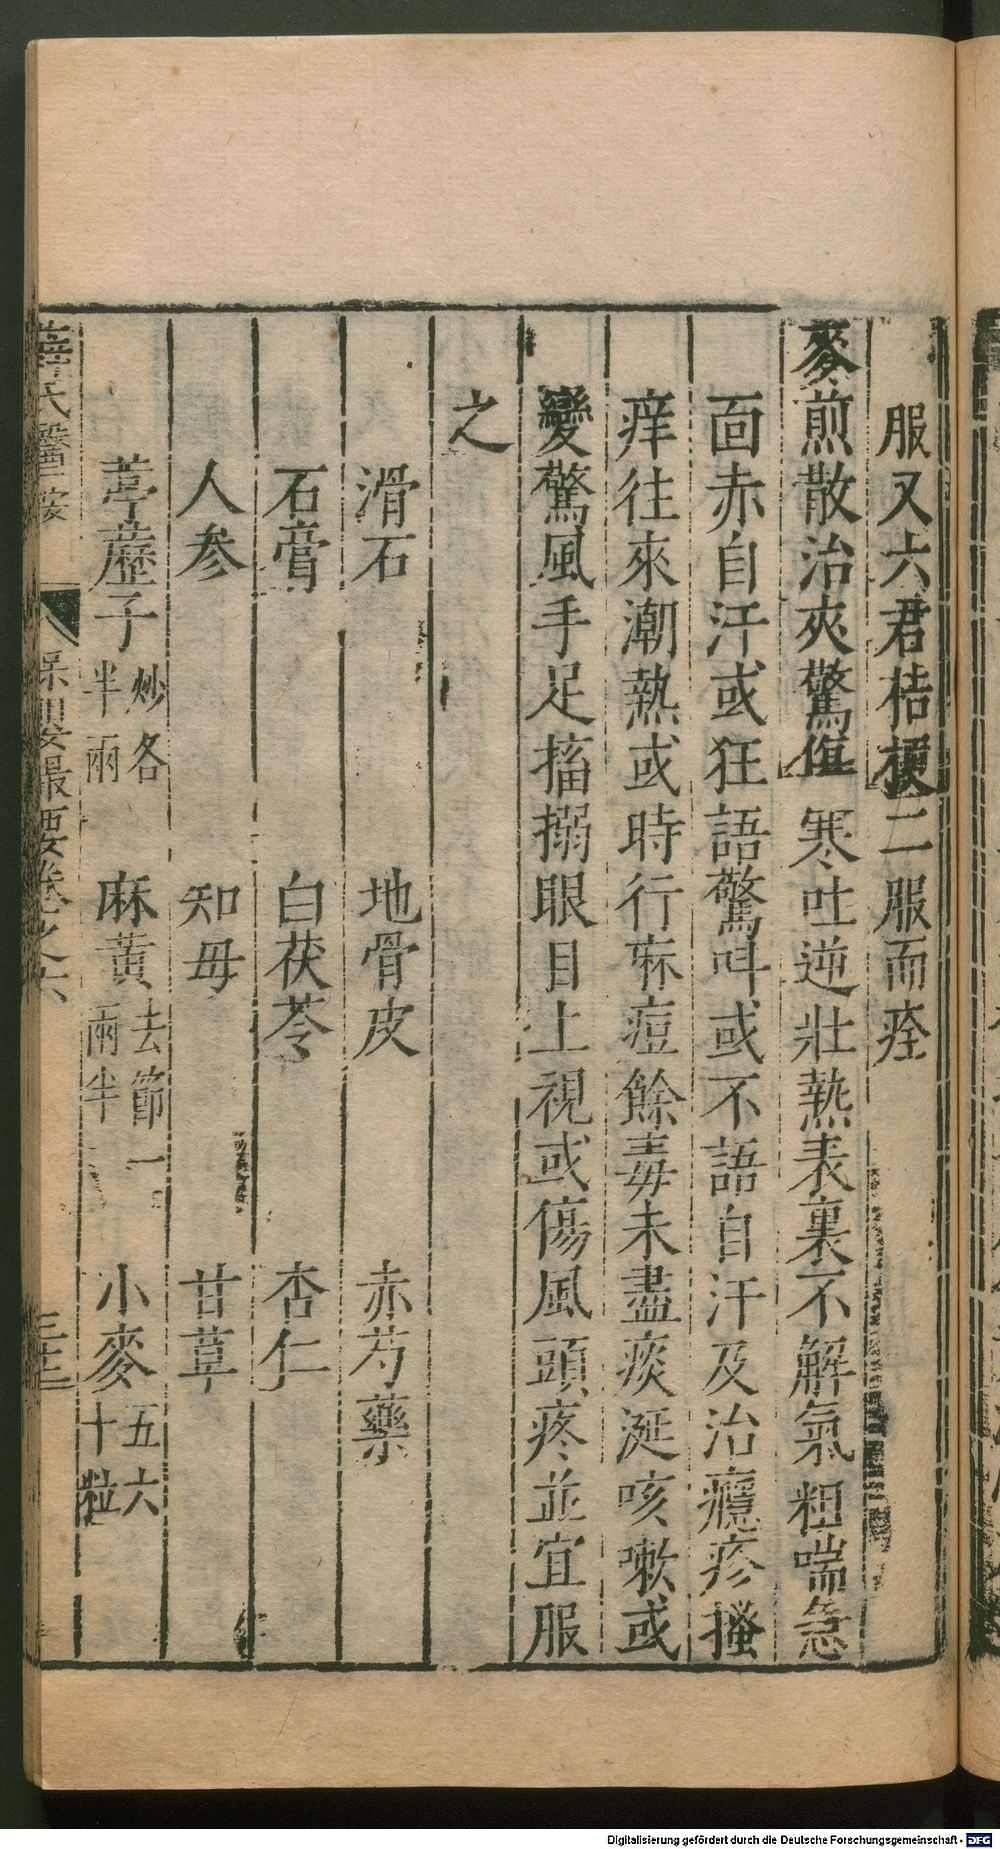 服又六君桔梗二服而痊
麥煎散治夾驚傷寒吐逆壯熱表裏不解氣粗喘急
面赤自汗或狂語驚呌或不語自汗及治癮疹搔
痒往來潮熱或時行麻痘餘毒未盡痰涎咳嗽或
變驚風手足搐搦眼目上視或傷風頭疼並宜服
之
滑石 地骨皮 赤芍藥
石膏 白茯苓 杏仁
人參 知母 甘草
葶藶子炒各半兩 麻黃去節一兩半 小麥五六十粒
薛氏醫按 保嬰撮要卷之六
Digitalisierung gefördert durch die Deutsche Forschungsgemeinschaft - DFG